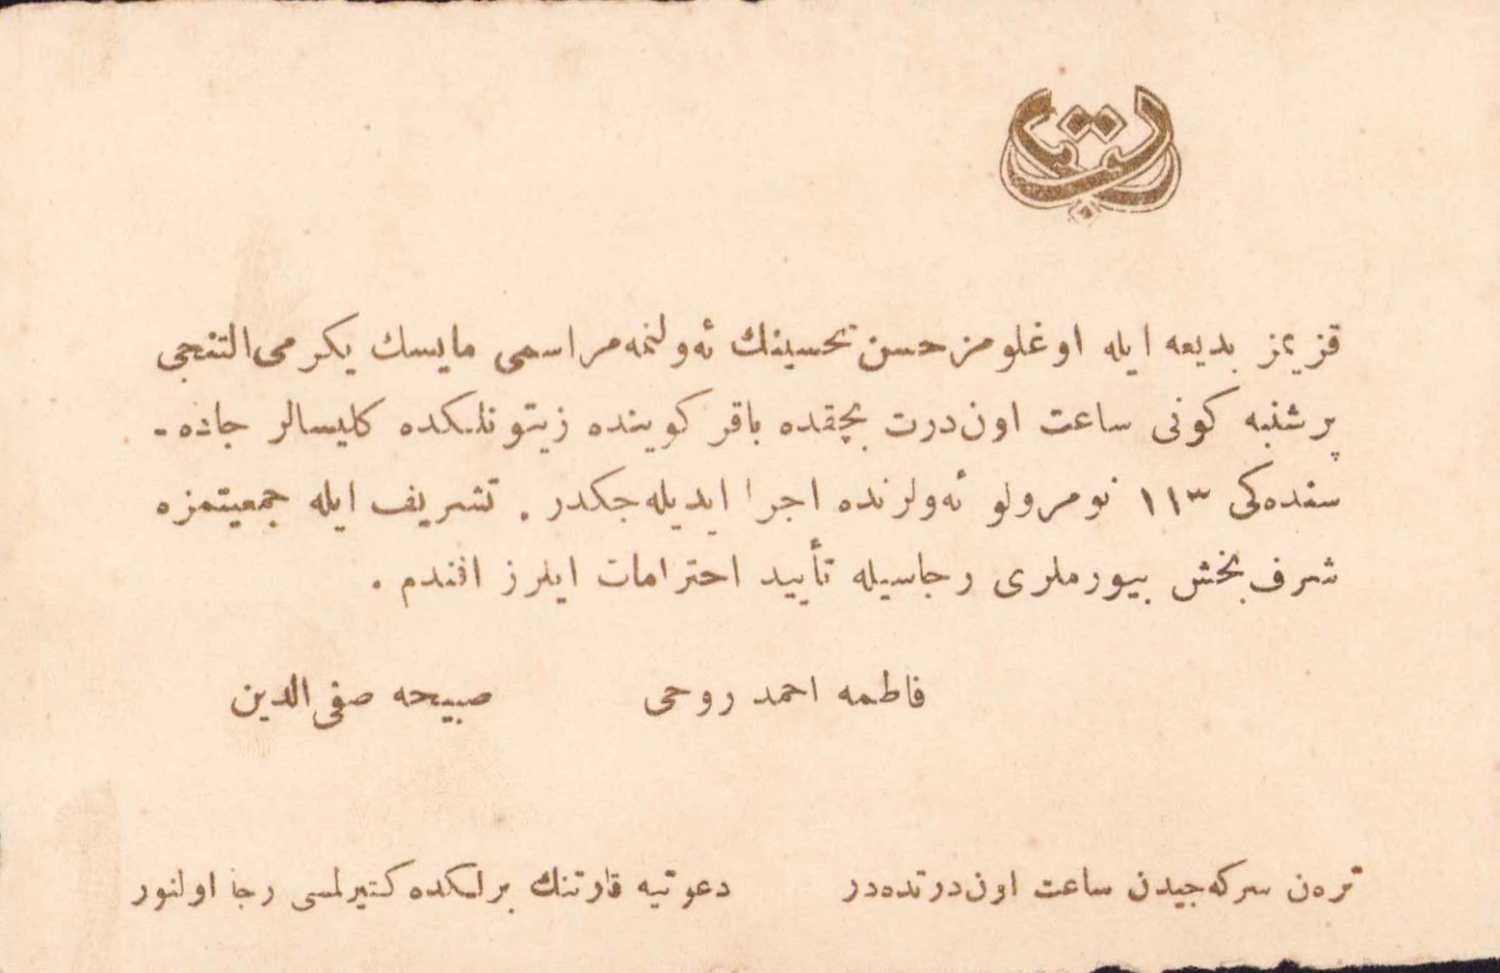 قزيمز بديعه ايله اوغلومز حسن تحسينك ئه‌ولنمه مراسمى مايسك يكرمى التنجى
پرشنبه كونى ساعت اون‌درت بچقده باقركوينده زيتونلكده كليسالر جاده-
سنده‌كى ١١٣ نومرولو ئه‌ولرنده اجرا ايديله‌جكدر . تشريف ايله جمعيتمزه
شرف‌بخش بيورملرى رجاسيله تأييد احترامات ايلرز افندم .
فاطمه احمد روحى صبيحه صفى‌الدين
تره‌ن سركه‌جيدن ساعت اون‌درتده‌در دعوتيه قارتنك برلكده كتيرلمسى رجا اولنور